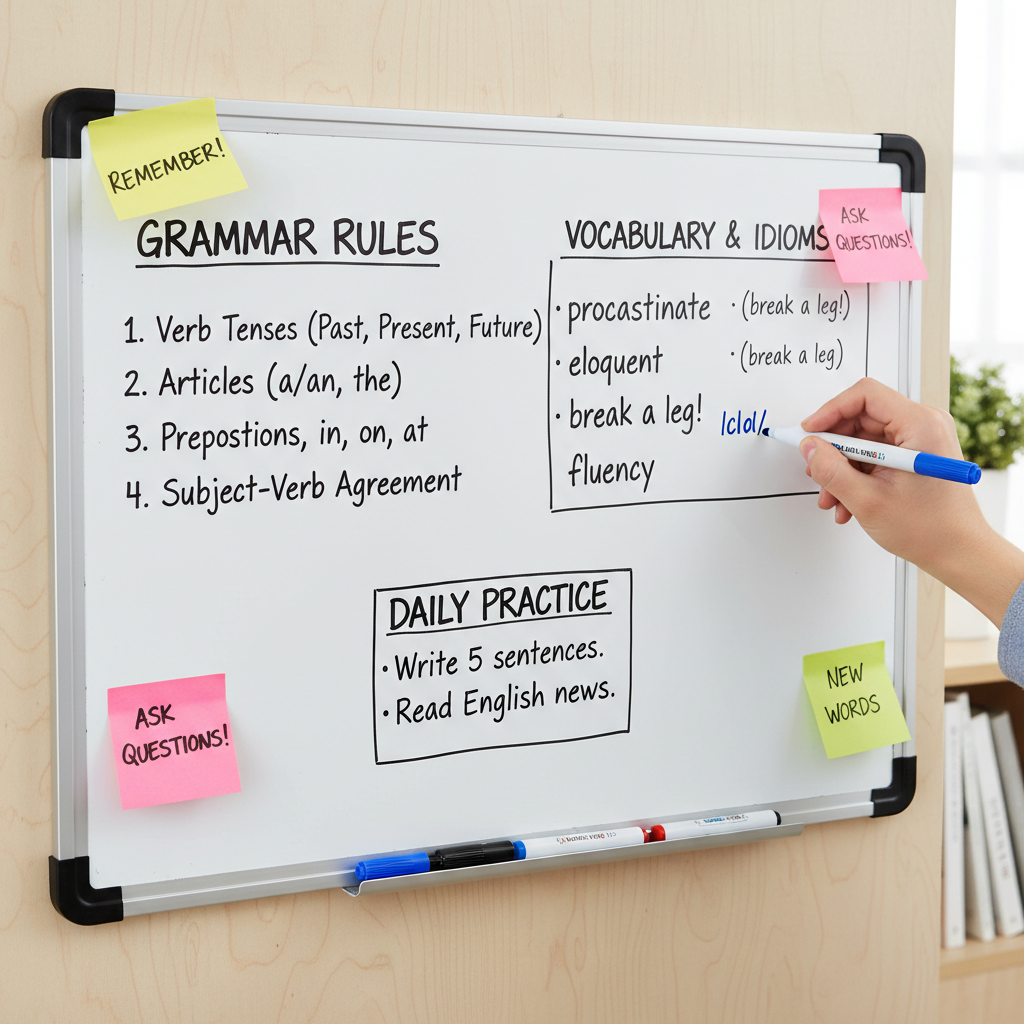 REMEMBER!
GRAMMAR RULES
1. Verb Tenses (Past, Present, Future)
2. Articles (a/an, the)
3. Prepostions, in, on, at
4. Subject-Verb Agreement
VOCABULARY & IDIOMS
ASK
QUESTIONS!
· procastinate · (break a leg!)
· eloquent · (break a leg)
· break a leg!
fluency
DAILY PRACTICE
· Write 5 sentences.
· Read English news.
ASK
QUESTIONS!
NEW
WORDS